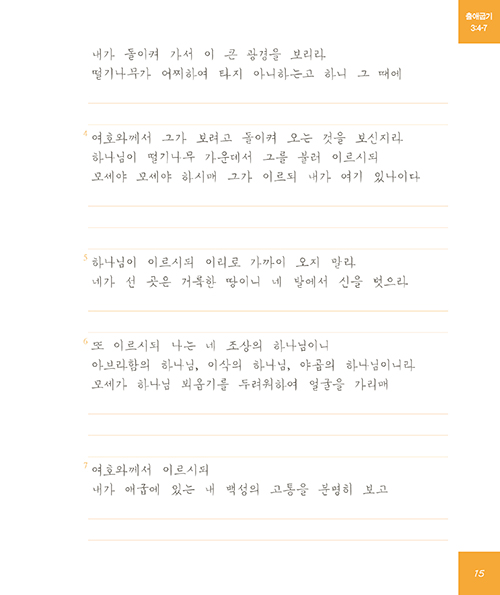 출애굽기
3:4-7
내가 돌이켜 가서 이 큰 광경을 보리라
떨기나무가 어찌하여 타지 아니하는고 하니 그 때에
4 여호와께서 그가 보려고 돌이켜 오는 것을 보신지라
하나님이 떨기나무 가운데서 그를 불러 이르시되
모세야 모세야 하시매 그가 이르되 내가 여기 있나이다
5 하나님이 이르시되 이리로 가까이 오지 말라
네가 선 곳은 거룩한 땅이니 네 발에서 신을 벗으라
6 또 이르시되 나는 네 조상의 하나님이니
아브라함의 하나님, 이삭의 하나님, 야곱의 하나님이니라
모세가 하나님 뵈옵기를 두려워하여 얼굴을 가리매
7 여호와께서 이르시되
내가 애굽에 있는 내 백성의 고통을 분명히 보고
15